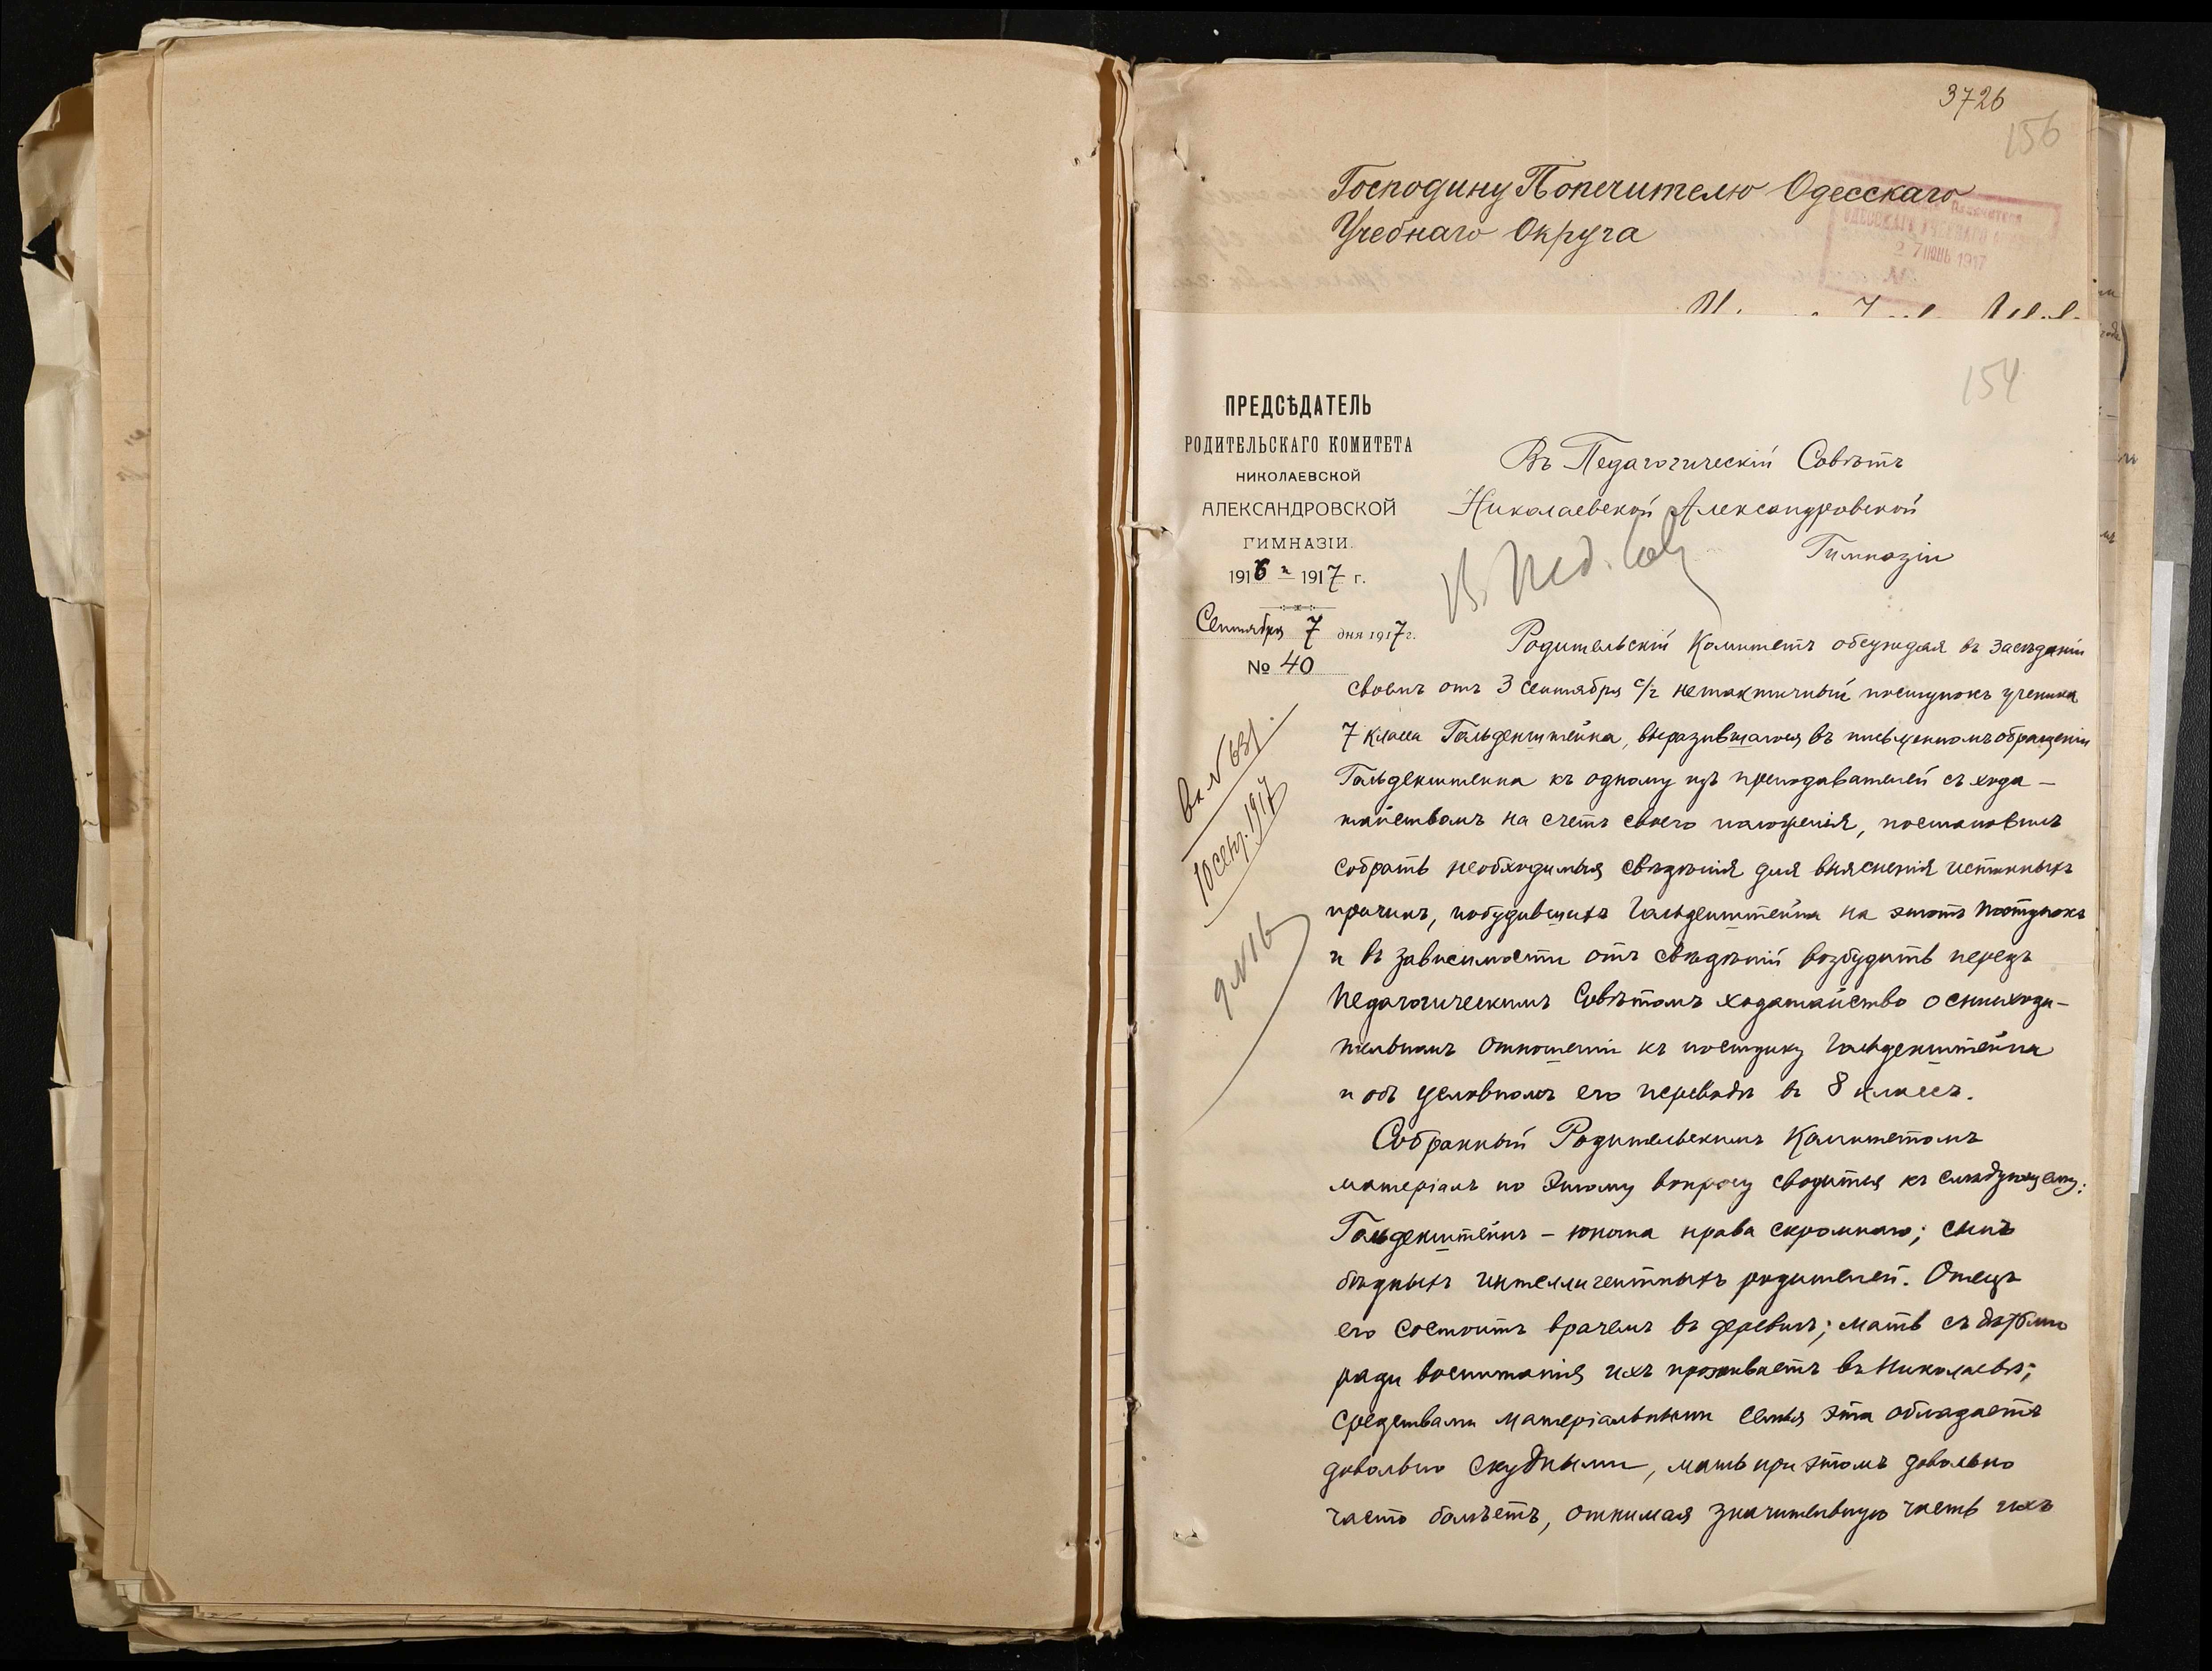 3726
156
Господину Попечителю Одесскаго
Учебнаго Округа
ОДЕССКАГО УЧЕБНАГО
27 ІЮНЬ 1917
№
154
ПРЕДСѢДАТЕЛЬ
РОДИТЕЛЬСКАГО КОМИТЕТА
НИКОЛАЕВСКОЙ
АЛЕКСАНДРОВСКОЙ
ГИМНАЗІИ.
1916 - 1917 г.
Сентября 7 дня 1917 г.
№ 40
Въ Педагогическій Совѣтъ
Николаевской Александровской
Гимназіи
В. Пед. Сов.
вх. № 631.
10 сент. 1917
д № 16
Родительскій Комитетъ обсуждая въ засѣданіи
своемъ отъ 3 сентября с/г нетактичный поступокъ ученика
7 класса Гальденштейна, выразившагося въ письменномъ обращеніи
Гальденштейна къ одному изъ преподавателей съ хода-
тайствомъ на счетъ своего положенія, постановилъ
собрать необходимыя свѣдѣнія для выясненія истинныхъ
причинъ, побудившихъ Гальденштейна на этотъ поступокъ
и въ зависимости отъ свѣдѣній возбудить передъ
Педагогическимъ Совѣтомъ ходатайство о снисходи-
тельномъ отношеніи къ поступку Гальденштейна
и объ условномъ его переводѣ въ 8 классъ.
Собранный Родительскимъ Комитетомъ
матеріалъ по этому вопросу сводится къ слѣдующему:
Гальденштейнъ - юноша нрава скромнаго; сынъ
бѣдныхъ интеллигентныхъ родителей. Отецъ
его состоитъ врачемъ въ деревнѣ; мать съ дѣтьми
ради воспитанія ихъ проживаетъ въ Николаевѣ;
средствами матеріальными семья эта обладаетъ
довольно скудными, мать при этомъ довольно
часто болѣетъ, отнимая значительную часть ихъ